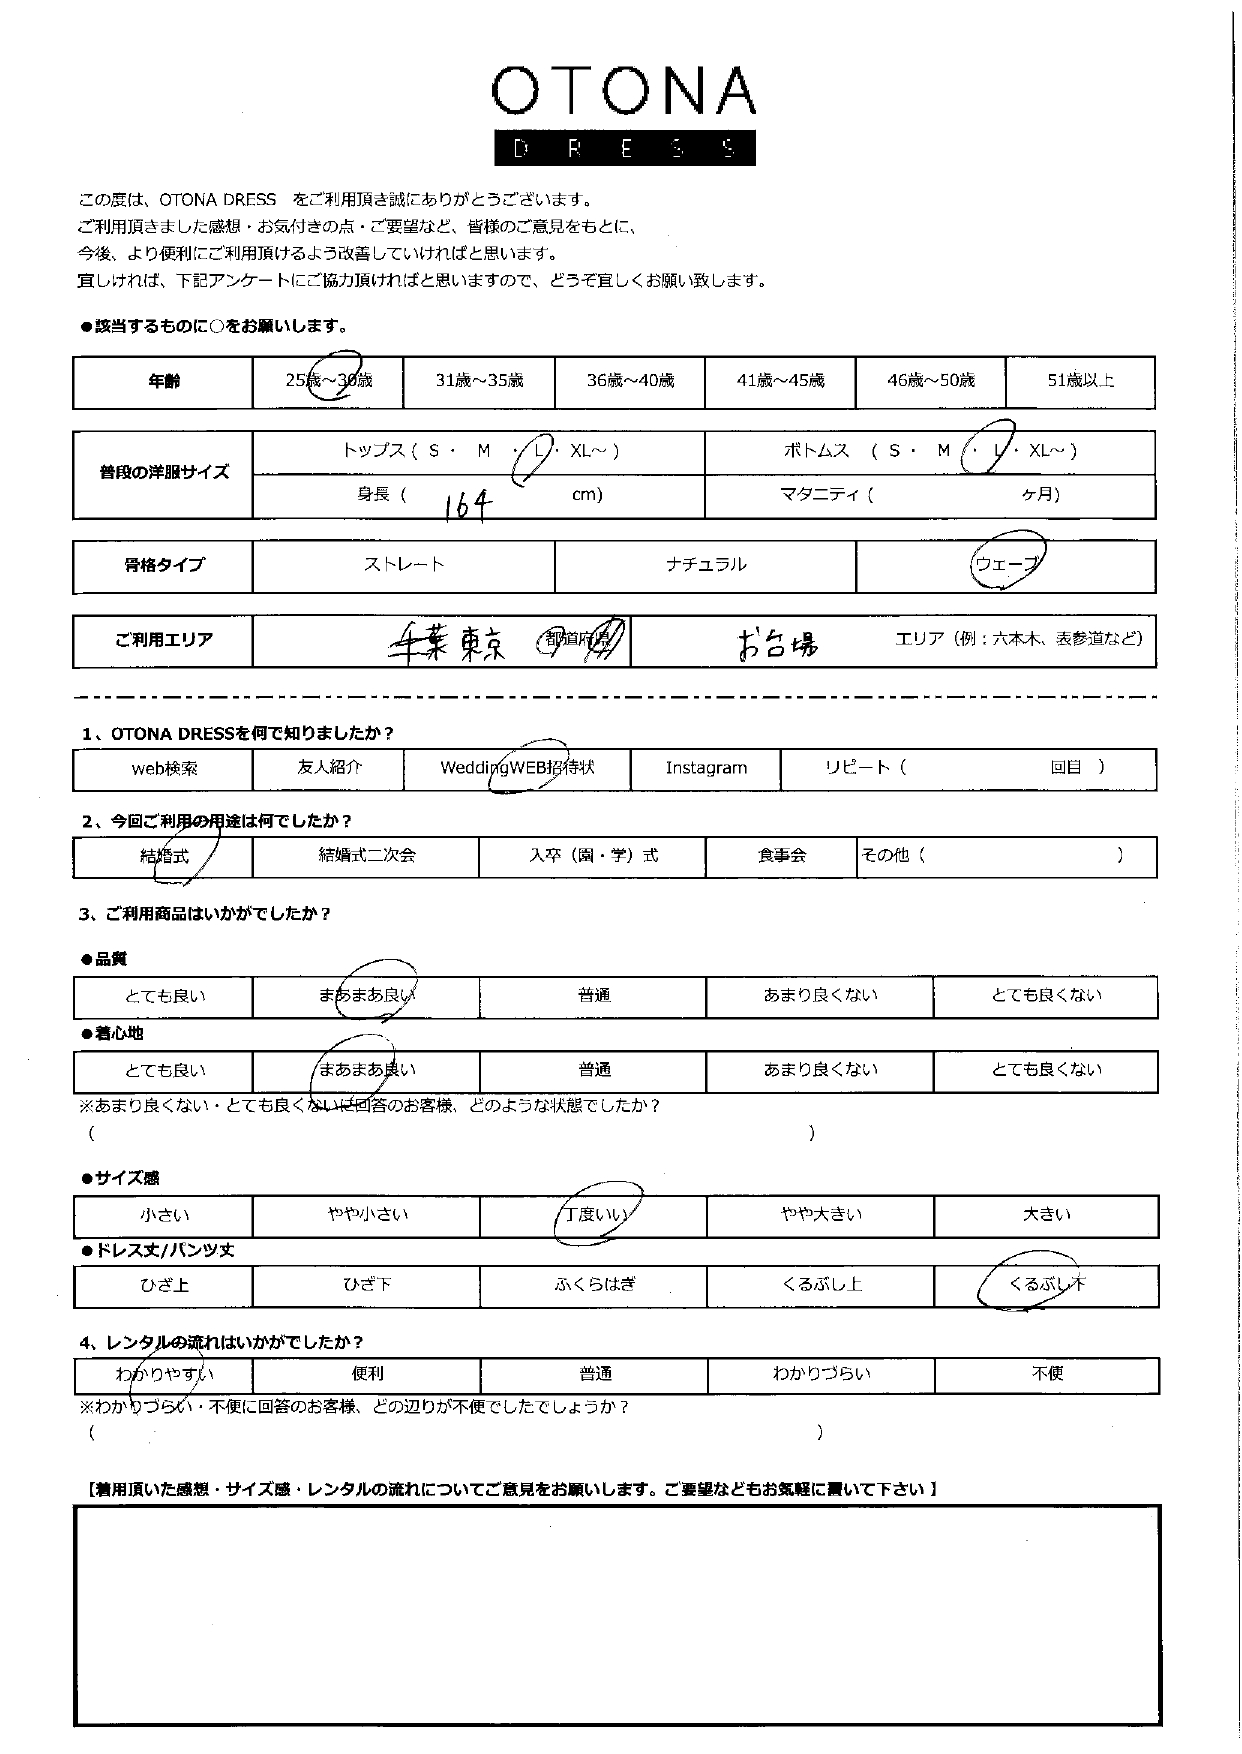 OTONA
DRESS
この度は、OTONA DRESS　をご利用頂き誠にありがとうございます。
ご利用頂きました感想・お気付きの点・ご要望など、皆様のご意見をもとに、
今後、より便利にご利用頂けるよう改善していければと思います。
宜しければ、下記アンケートにご協力頂ければと思いますので、どうぞ宜しくお願い致します。
●該当するものに○をお願いします。
年齢 25歳～30歳 31歳～35歳 36歳～40歳 41歳～45歳 46歳～50歳 51歳以上
普段の洋服サイズ トップス ( S ・ M ・ L ・ XL～ ) ボトムス ( S ・ M ・ L ・ XL～ )
身長 ( 164 cm) マタニティ ( ヶ月)
骨格タイプ ストレート ナチュラル ウェーブ
ご利用エリア 千葉 東京 都道府県 お台場 エリア（例：六本木、表参道など）
1、OTONA DRESSを何で知りましたか？
web検索 友人紹介 WeddingWEB招待状 Instagram リピート（ 回目 ）
2、今回ご利用の用途は何でしたか？
結婚式 結婚式二次会 入卒（園・学）式 食事会 その他（ ）
3、ご利用商品はいかがでしたか？
●品質
とても良い まあまあ良い 普通 あまり良くない とても良くない
●着心地
とても良い まあまあ良い 普通 あまり良くない とても良くない
※あまり良くない・とても良くないに回答のお客様、どのような状態でしたか？
（ ）
●サイズ感
小さい やや小さい 丁度いい やや大きい 大きい
●ドレス丈/パンツ丈
ひざ上 ひざ下 ふくらはぎ くるぶし上 くるぶし下
4、レンタルの流れはいかがでしたか？
わかりやすい 便利 普通 わかりづらい 不便
※わかりづらい・不便に回答のお客様、どの辺りが不便でしたでしょうか？
（ ）
【着用頂いた感想・サイズ感・レンタルの流れについてご意見をお願いします。ご要望などもお気軽に書いて下さい】